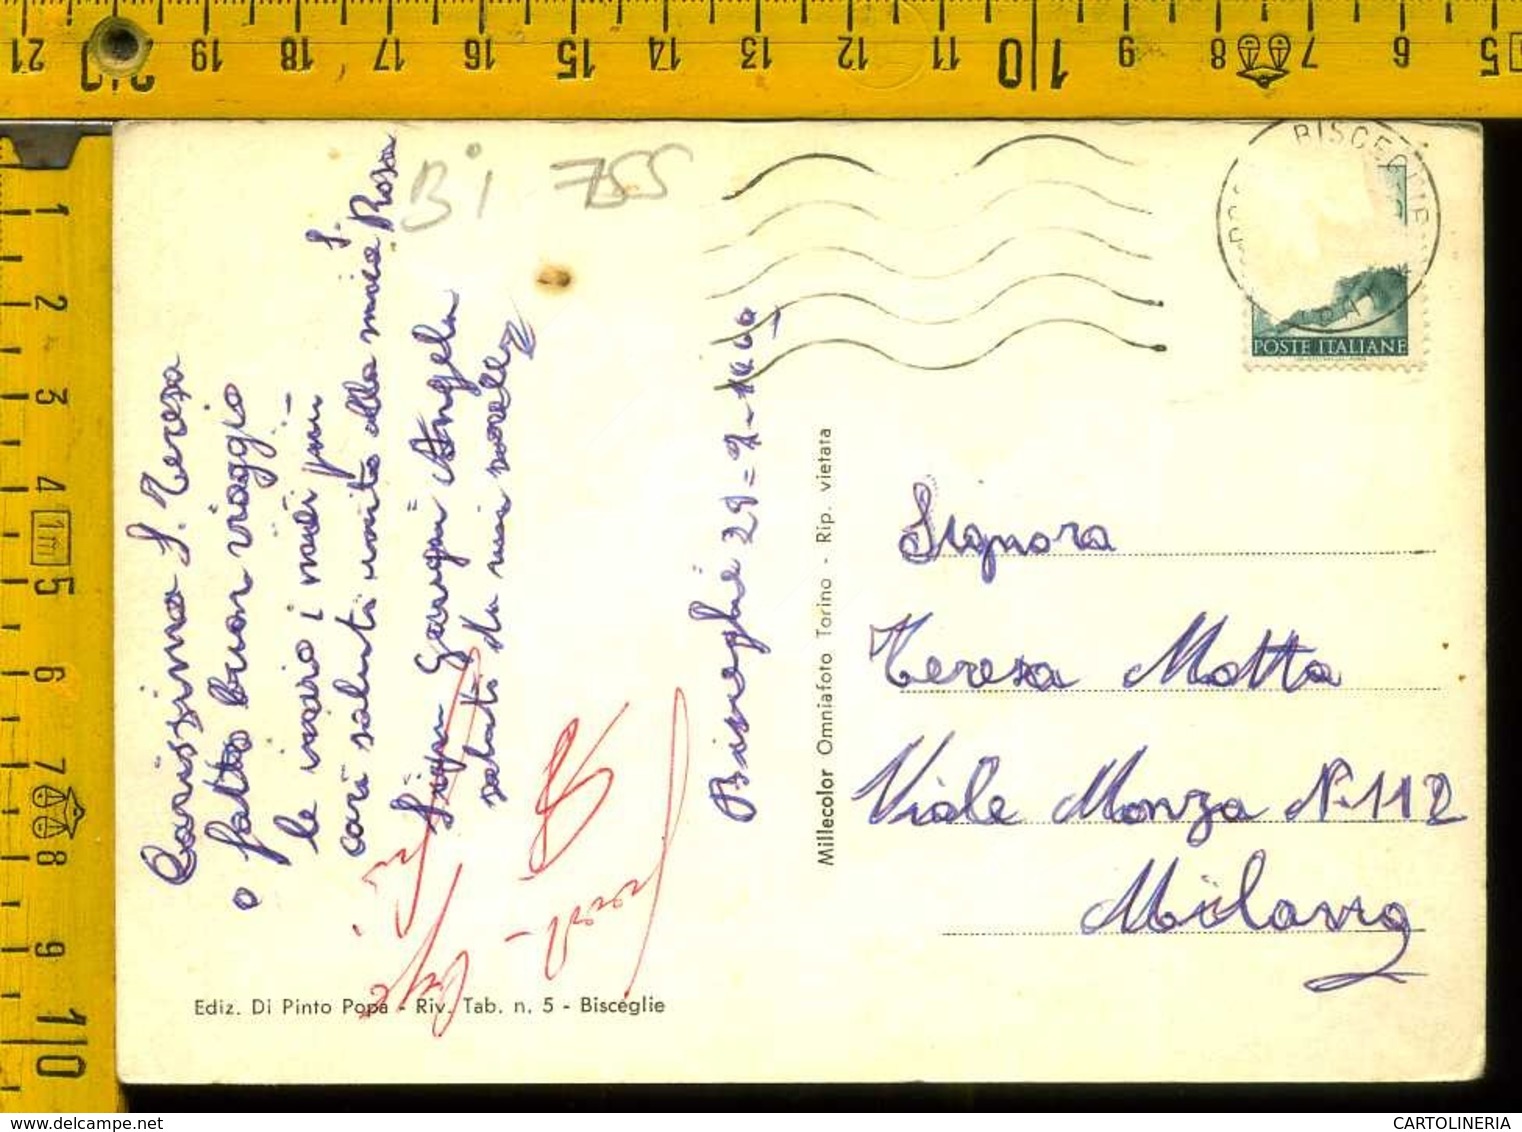 Bi 755
BISCEGLIE
POSTE ITALIANE
Carissima S. Teresa
o fatto buon viaggio
le invio i miei piu
cari saluti unito alla mia S. Rosa
Angela
saluti da mia sorella
Bisceglie 29=7-
Millecolor Omniafoto Torino - Rip. vietata
Signora
Teresa Motta
Viale Monza N. 112
Milano
Ediz. Di Pinto Popa - Riv. Tab. n. 5 - Bisceglie
delcampe.net
CARTOLINERIA